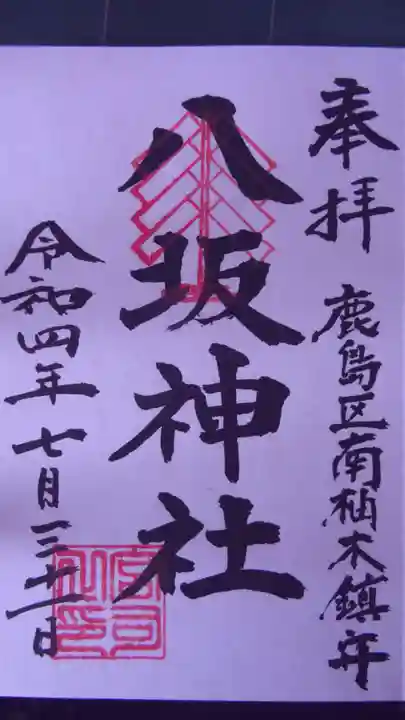 奉拝 鹿島区南柚木鎮守
八坂神社
令和四年七月三十一日